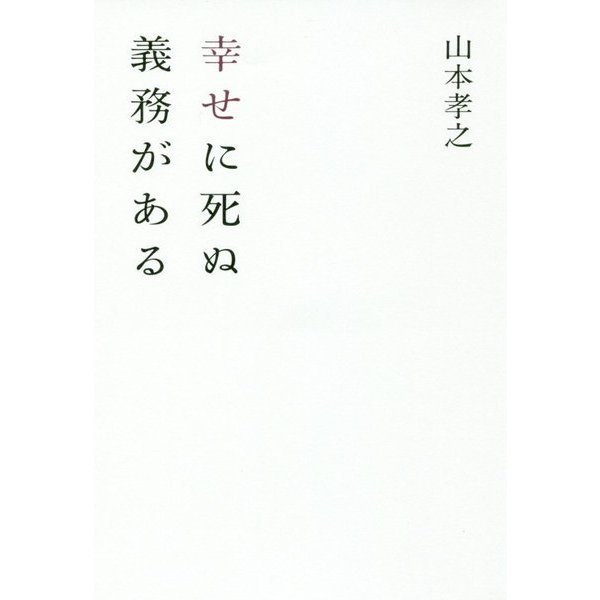 山本孝之
幸せに死ぬ
義務がある